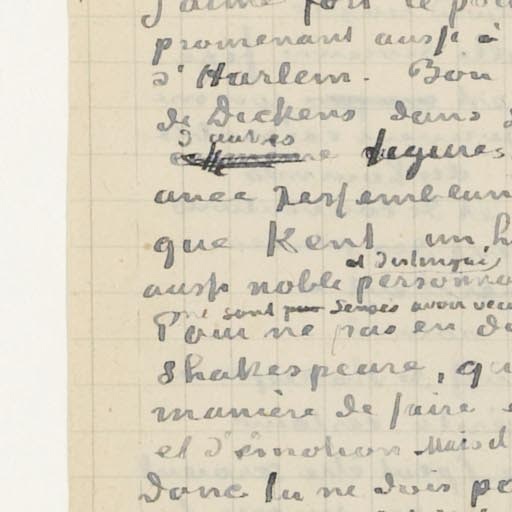 J'aime fort le
promenant aussi à
d'Harlem. Bon
de Dickens dans
d'autres
figures
avec ressemblan
que Kent un h
et distingué
aussi noble personna
sont censés avoir vecu
Pour ne pas en d
Shakespeare, qu
manière de faire
et d'émotion Mais d
donc tu ne dois pa